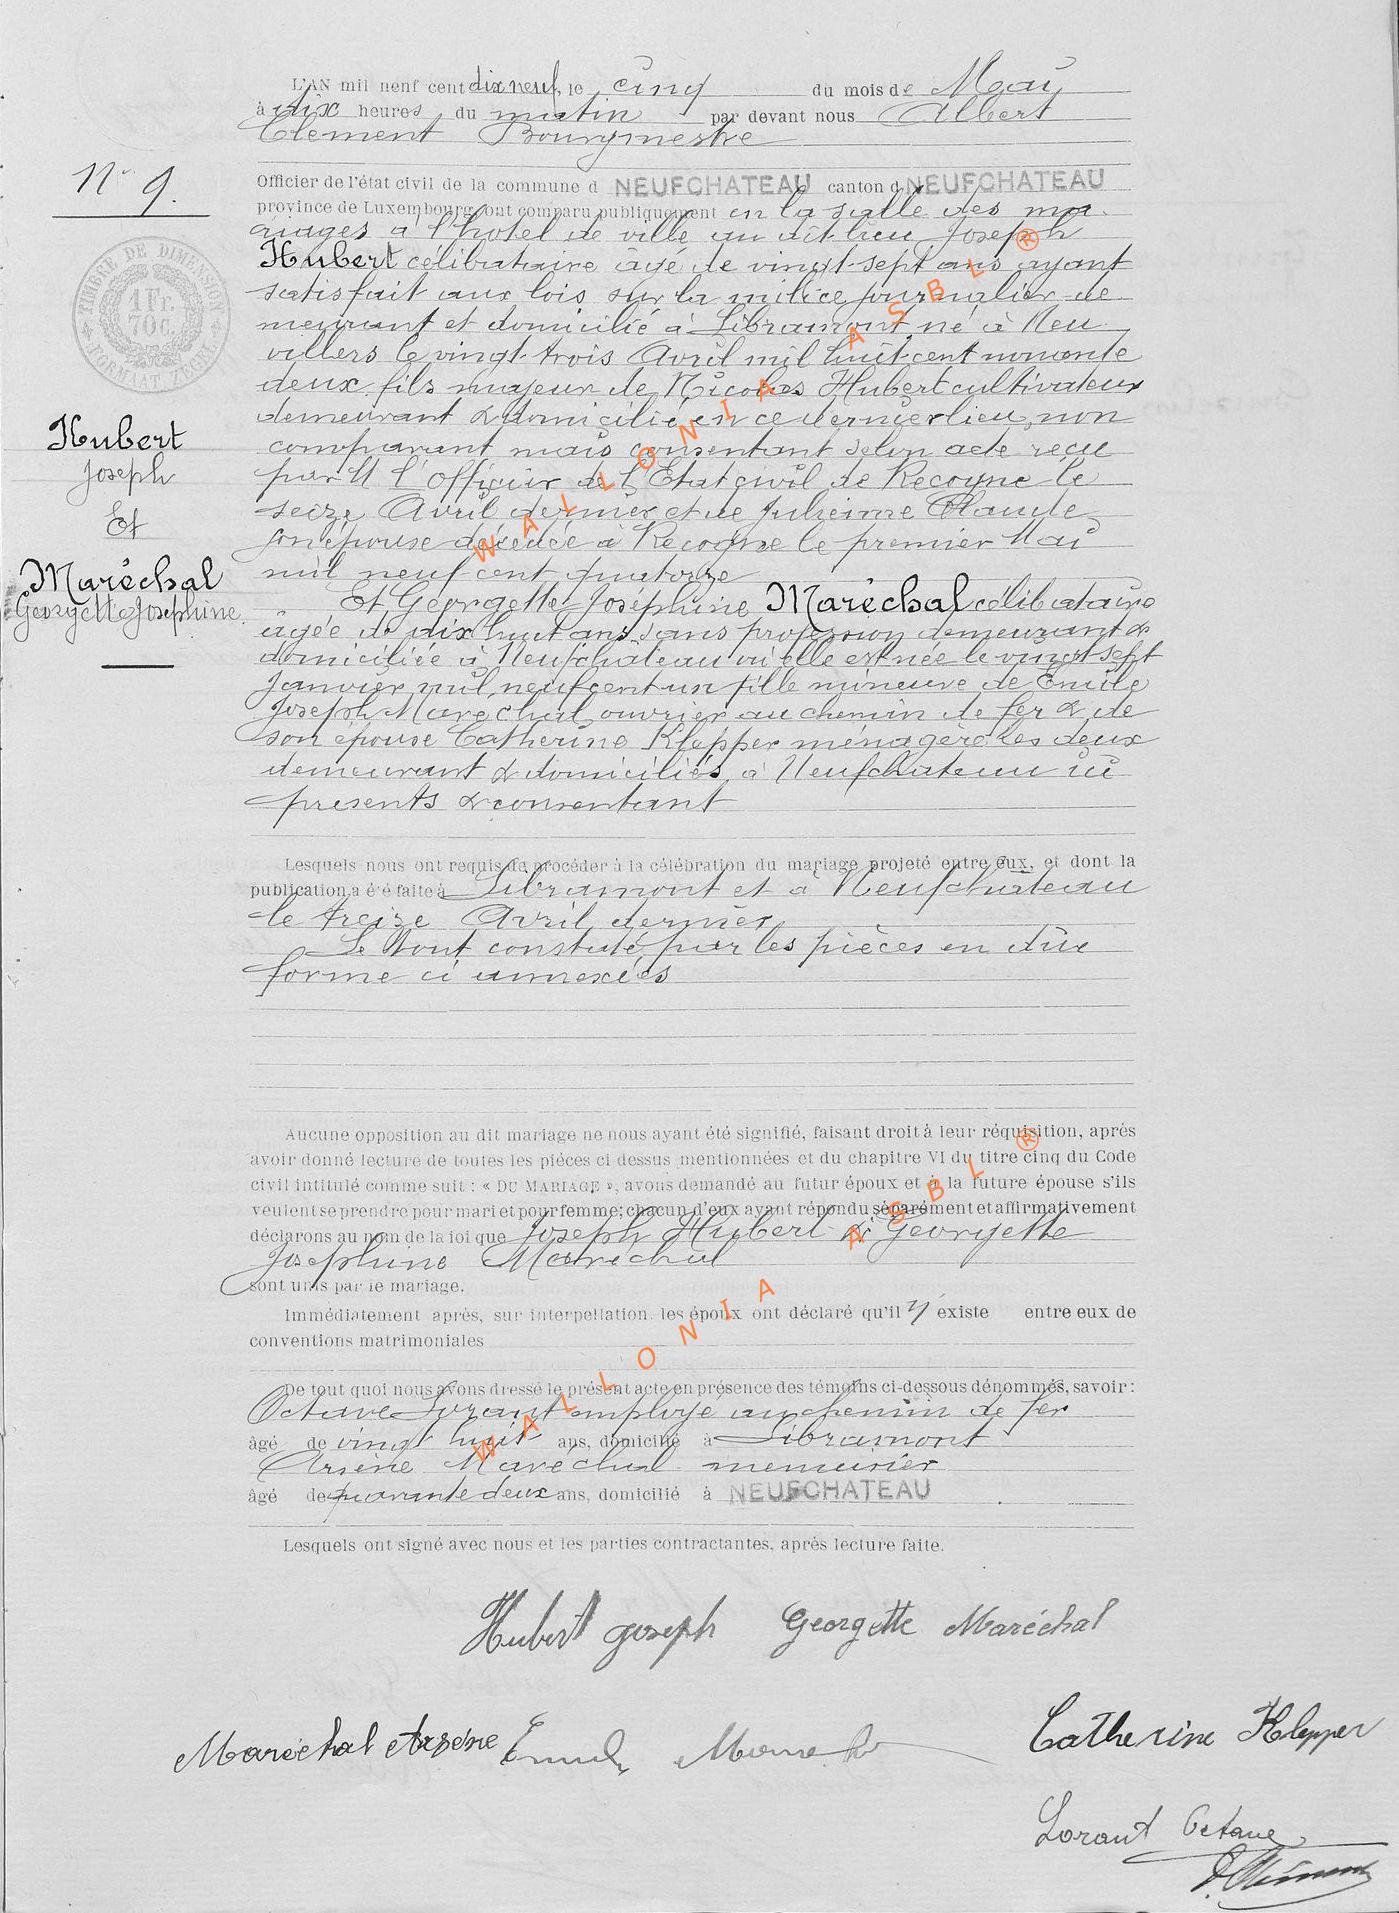 L'AN mil neuf cent dix neuf, le cinq du mois de Mai
à dix heures du matin par devant nous Albert
Clement Bourgmestre
N° 9.
Officier de l'état civil de la commune d NEUFCHATEAU canton d NEUFCHATEAU
province de Luxembourg, ont comparu publiquement en la salle des ma-
riages à l'hotel de ville au dit lieu Joseph
Hubert célibataire âgé de vingt-sept ans ayant
satisfait aux lois sur la milice journalier de
meurant et domicilié à Libramont, né à Neu-
villers le vingt-trois Avril mil huit cent nonante
deux, fils majeur de Nicolas Hubert cultivateur
demeurant & domicilié en ce dernier lieu, non
comparant mais consentant selon acte reçu
par M l'Officier de l'Etat civil de Recogne le
seize Avril dernier et de Julienne Claude
son épouse décédée à Recogne le premier Mai
mil neuf cent quatorze
Et Georgette Joséphine Maréchal célibataire
âgée de dix huit ans sans profession demeurant &
domiciliée à Neufchâteau où elle est née le vingt sept
Janvier mil neuf cent un fille mineure de Emile
Joseph Maréchal ouvrier au chemin de fer & de
son épouse Catherine Klepper ménagère les deux
demeurant & domiciliés à Neufchateau ici
présents & consentant
TIMBRE DE DIMENSION
1 Fr.
70 C.
FORMAAT ZEGEL
Hubert
Joseph
Et
Maréchal
Georgette Josephine
Lesquels nous ont requis de procéder à la célébration du mariage projeté entre eux, et dont la
publication a été faite à Libramont et à Neufchateau
le treize Avril dernier
Le tout constaté par les pièces en due
forme ci annexées
Aucune opposition au dit mariage ne nous ayant été signifié, faisant droit à leur réquisition, après
avoir donné lecture de toutes les pièces ci dessus mentionnées et du chapitre VI du titre cinq du Code
civil intitulé comme suit : « DU MARIAGE », avons demandé au futur époux et à la future épouse s'ils
veulent se prendre pour mari et pour femme; chacun d'eux ayant répondu séparément et affirmativement
déclarons au nom de la loi que Joseph Hubert & Georgette
Josephine Maréchal
sont unis par le mariage.
Immédiatement après, sur interpellation, les époux ont déclaré qu'il n'existe entre eux de
conventions matrimoniales
De tout quoi nous avons dressé le présent acte en présence des témoins ci-dessous dénommés, savoir :
Octave Lorant employé au chemin de fer
âgé de vingt huit ans, domicilié à Libramont
Arsène Maréchal menuisier
âgé de quarante deux ans, domicilié à NEUFCHATEAU
Lesquels ont signé avec nous et les parties contractantes, après lecture faite.
Hubert Joseph Georgette Maréchal
Maréchal Arsène Emile Catherine Klepper
Lorant Octave
A. Clément
WALLONIA ASBL ®
WALLONIA ASBL ®